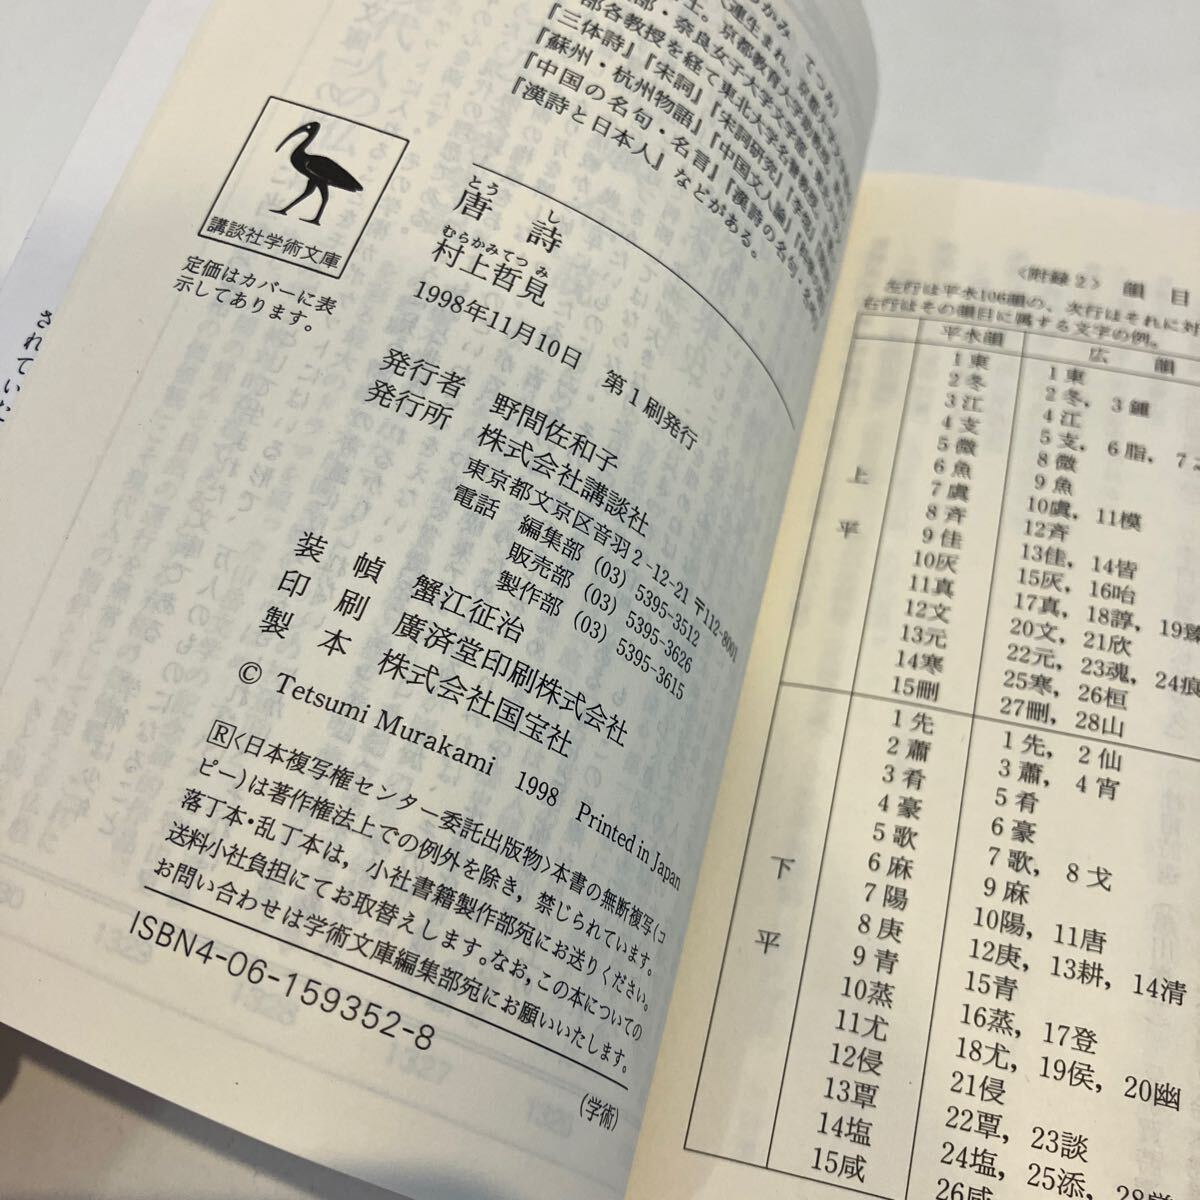 部各教授を経て東北大学名誉教授。
『三体詩』『宋詞』『宋詞研究』『李煜
『蘇州・杭州物語』『中国文人論』
『中国の名句・名言』『漢詩の名句・
『漢詩と日本人』などがある。
講談社学術文庫
定価はカバーに表
示してあります。
とう し
唐詩
むらかみてつ み
村上哲見
1998年11月10日 第1刷発行
発行者 野間佐和子
発行所 株式会社講談社
東京都文京区音羽 2-12-21 〒112-8001
電話 編集部 (03) 5395-3512
販売部 (03) 5395-3626
製作部 (03) 5395-3615
装幀 蟹江征治
印刷 廣済堂印刷株式会社
製本 株式会社国宝社
© Tetsumi Murakami 1998 Printed in Japan
R〈日本複写権センター委託出版物〉本書の無断複写(コ
ピー)は著作権法上での例外を除き，禁じられています。
落丁本・乱丁本は，小社書籍製作部宛にお送りください。
送料小社負担にてお取替えします。なお，この本についての
お問い合わせは学術文庫編集部宛にお願いいたします。
ISBN4-06-159352-8
(学術)
〈附録2〉 韻目
左行は平水106韻の、次行はそれに対
右行はその韻目に属する文字の例。
平水韻 広韻
上平
1東 1東
2冬 2冬，3鍾
3江 4江
4支 5支，6脂，7
5微 8微
6魚 9魚
7虞 10虞，11模
8斉 12斉
9佳 13佳，14皆
10灰 15灰，16咍
11真 17真，18諄，19臻
12文 20文，21欣
13元 22元，23魂，24痕
14寒 25寒，26桓
15刪 27刪，28山
下平
1先 1先，2仙
2蕭 3蕭，4宵
3肴 5肴
4豪 6豪
5歌 7歌，8戈
6麻 9麻
7陽 10陽，11唐
8庚 12庚，13耕，14清
9青 15青
10蒸 16蒸，17登
11尤 18尤，19侯，20幽
12侵 21侵
13覃 22覃，23談
14塩 24塩，25添，
15咸 26咸